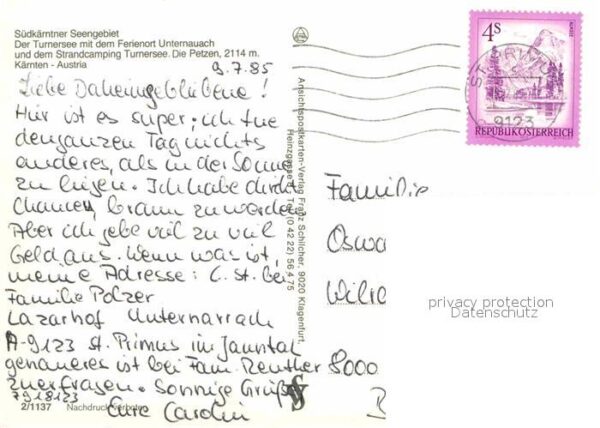 Südkärntner Seengebiet
Der Turnersee mit dem Ferienort Unternauach
und dem Strandcamping Turnersee. Die Petzen, 2114 m.
Kärnten - Austria
9.7.85
Liebe Daheimgebliebene!
Hier ist es super; ich tue
den ganzen Tag nichts
anderes, als in der Sonne
zu liegen. Ich habe direkt
Chancen, braun zu werden.
Aber ich gebe viel zu viel
Geld aus. Wenn was ist,
meine Adresse: C. St. bei
Familie Polzer
Lazarhof Unternarrach
A-9123 St. Primus im Jauntal
genaueres ist bei Fam. Reuther
zu erfragen. Sonnige Grüße
Eure Carolin
7918123
2/1137 Nachdruck verboten
Ansichtspostkarten-Verlag Franz Schilcher, 9020 Klagenfurt,
Heinzgasse 4, Tel. (0 42 22) 56 4 75
4S
REPUBLIK ÖSTERREICH
9123
Familie
Oswa
8000
privacy protection
Datenschutz